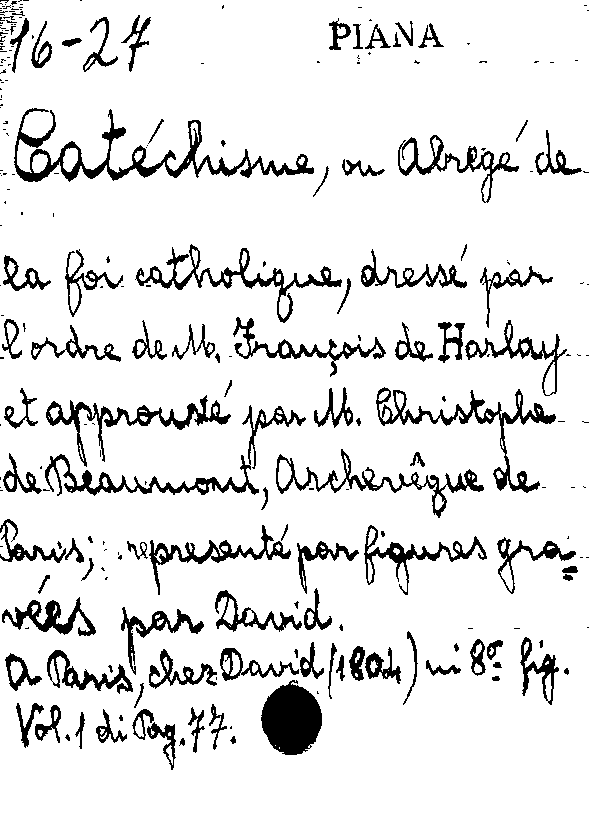 16-27 PIANA
Catéchisme, ou Abregé de
la foi catholique, dressé par
l'ordre de M. François de Harlay
et approuvé par M. Christophe
de Beaumont, Archevêque de
Paris; représenté par figures gra=
vées par David.
A Paris, chez David (1804) in 8º fig.
Vol. 1 di Pag. 77.